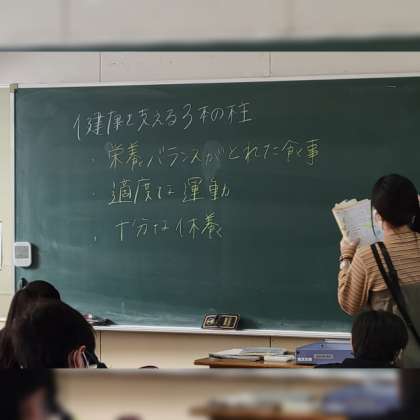 健康を支える3本の柱
・栄養バランスがとれた食事
・適度な運動
・十分な休養